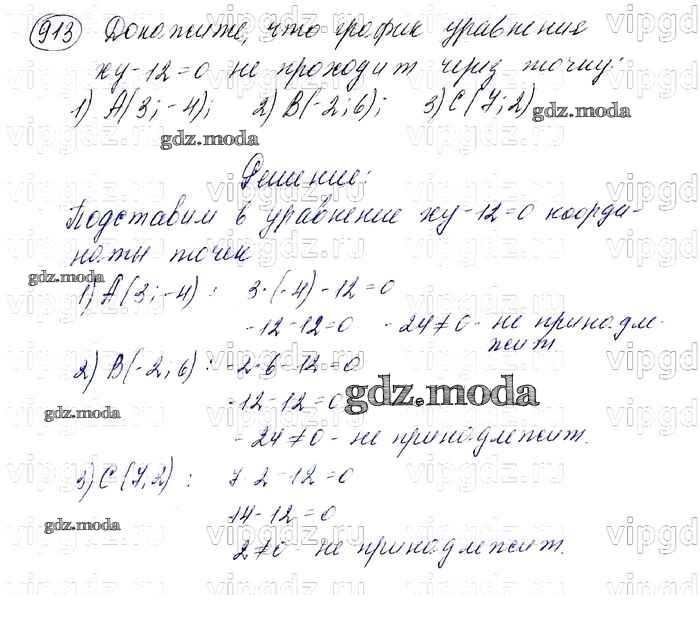 913 Докажите, что график уравнения
xy-12=0 не проходит через точку:
1) A(3;-4); 2) B(-2;6); 3) C(7;2)
gdz.moda
gdz.moda
Решение:
Подставим в уравнение xy-12=0 коорди-
наты точек
gdz.moda
1) A(3;-4): 3·(-4)-12=0
-12-12=0 -24≠0- не принадле-
жит
2) B(-2;6): -2·6-12=0
gdz.moda
gdz.moda
-12-12=0
-24≠0- не принадлежит.
3) C(7,2): 7·2-12=0
14-12=0
gdz.moda
2≠0- не принадлежит.